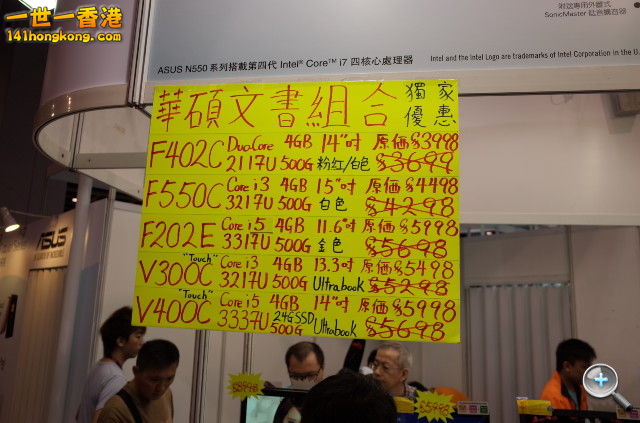 一世一香港
141hongkong.com
附送專用外置式
SonicMaster 超音擴音器
ASUS N550 系列搭載第四代 Intel® Core™ i7 四核心處理器
Intel and the Intel Logo are trademarks of Intel Corporation in the U.
華碩文書組合 獨家優惠
F402C Duo Core 4GB 14"吋 原価$3998
2117U 500G 粉紅/白色 $3699
F550C Core i3 4GB 15"吋 原価$4498
3217U 500G 白色 $4298
F202E Core i5 4GB 11.6"吋 原価$5998
3317U 500G 金色 $5698
"Touch"
V300C Core i3 4GB 13.3吋 原価$5498
3217U 500G Ultrabook $5298
"Touch"
V400C Core i5 4GB 14"吋 原価$5998
3337U 24G SSD 500G Ultrabook $5698
ASUS
$8998
$5998